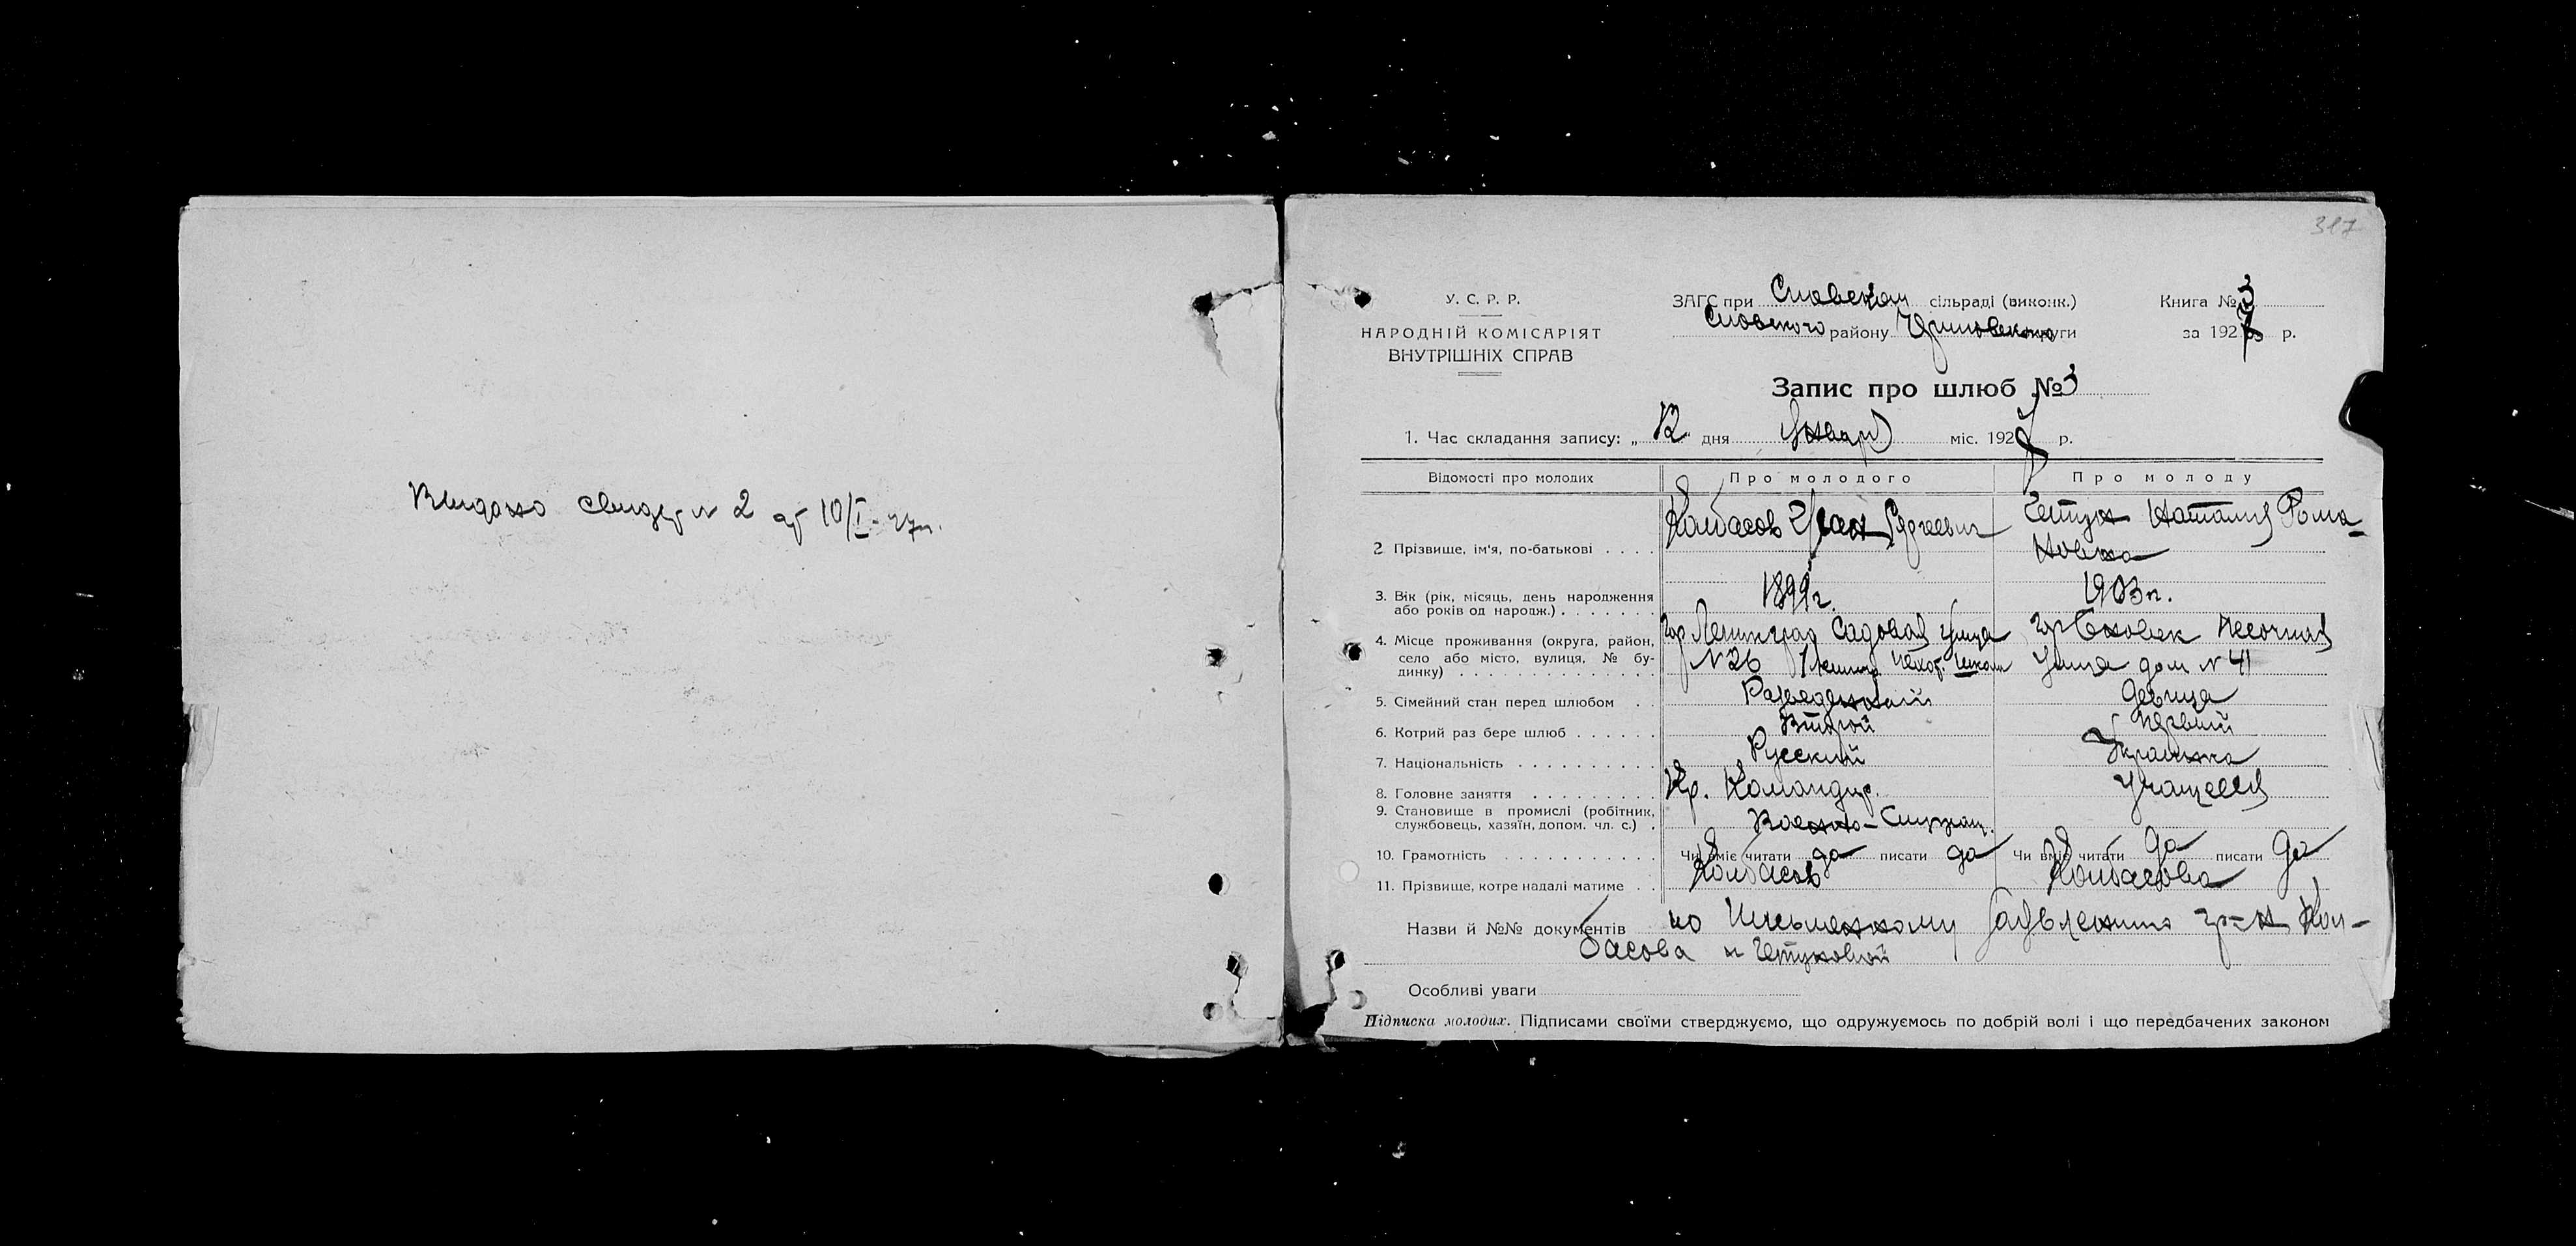 Выдано свидет № 2 от 10/I-27г.
317
У. С. Р. Р.
НАРОДНІЙ КОМІСАРІЯТ
ВНУТРІШНІХ СПРАВ
ЗАГС при сільраді (виконк.)
району округи
Книга № 3
за 1927 р.
Запис про шлюб № 3
1. Час складання запису: „12" дня Января міс. 1927 р.
Відомості про молодих Про молодого Про молоду
2 Прізвище, ім'я, по-батькові . . . . Колбасов Сергеевич Наталия Рома-
новна
3. Вік (рік, місяць, день народження 1899г. 1903г.
або років од народж.) . . . . . . .
4. Місце проживання (округа, район, гор Ленинград Садовая улица гор Сновск Песочная
село або місто, вулиця, № бу- № 26 пехот. школа улица дом № 41
динку) . . . . . . . . . . . . . .
5. Сімейний стан перед шлюбом . . Разведенный девица
6. Котрий раз бере шлюб . . . . . . Второй первый
7. Національність . . . . . . . . . . Русский Украинка
8. Головне заняття . . . . . . . . . Кр. Командир. Учащаяся
9. Становище в промислі (робітник,
службовець, хазяїн, допом. чл. с.) . Военно-Служащ.
10. Грамотність . . . . . . . . . . . Чи вміє читати да писати да Чи вміє читати да писати да
11. Прізвище, котре надалі матиме . . Колбасов Колбасова
Назви й №№ документів по письменному заявлению гр-н Кол-
басова и
Особливі уваги
Підписка молодих. Підписами своїми стверджуємо, що одружуємось по добрій волі і що передбачених законом